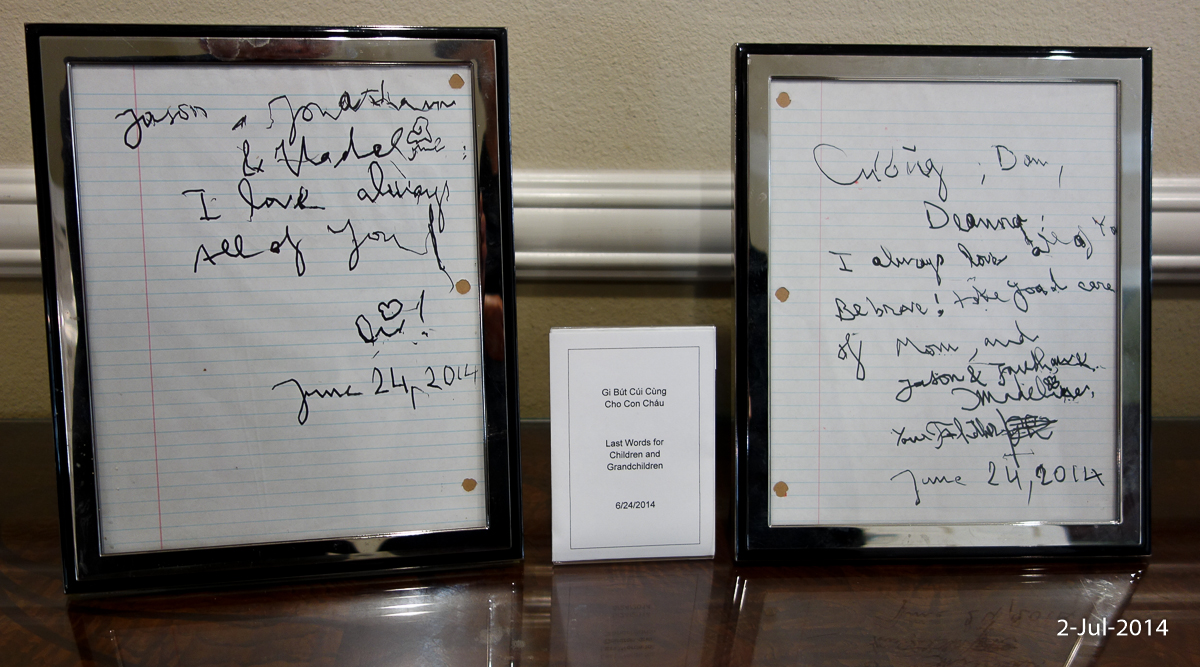 Jason , Jonathann
&
I love always
All of You!
June 24, 2014
Gi Bút Cúi Cùng
Cho Con Cháu
Last Words for
Children and
Grandchildren
6/24/2014
Cường , Dan,
Deanna
I always love all of Yo
Be brave! take good care
of Mom, and
Jason &
Madeline,
Your Father
June 24, 2014
2-Jul-2014